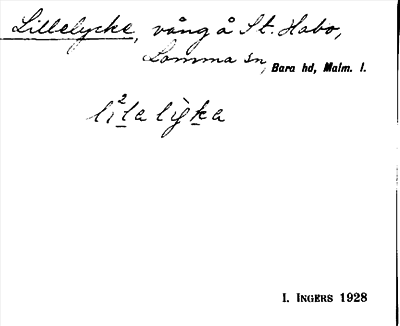 Lillelycke, vång å St. Habo,
Lomma sn, Bara hd, Malm. l.
li²la lỳka
I. INGERS 1928